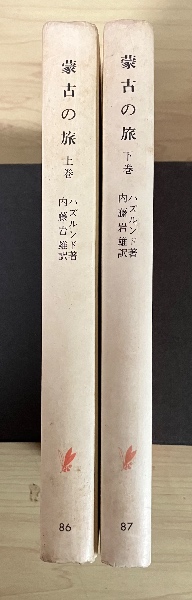 蒙古の旅
上巻
ハズルンド著
内藤岩雄訳
86
蒙古の旅
下巻
ハズルンド著
内藤岩雄訳
87